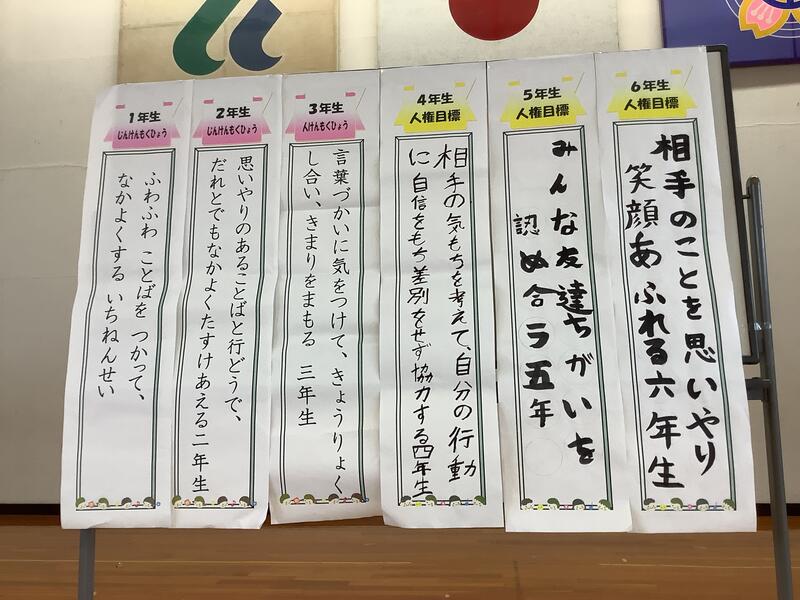 1年生
じんけんもくひょう
ふわふわ ことばを つかって、
なかよくする いちねんせい
2年生
じんけんもくひょう
思いやりのあることばと行どうで、
だれとでもなかよくたすけあえる二年生
3年生
人けんもくひょう
言葉づかいに気をつけて、きょうりょく
し合い、きまりをまもる 三年生
4年生
人権目標
相手の気もちを考えて、自分の行動
に自信をもち差別をせず協力する四年生
5年生
人権目標
みんな友達ちがいを
認め合う五年
6年生
人権目標
相手のことを思いやり
笑顔あふれる六年生